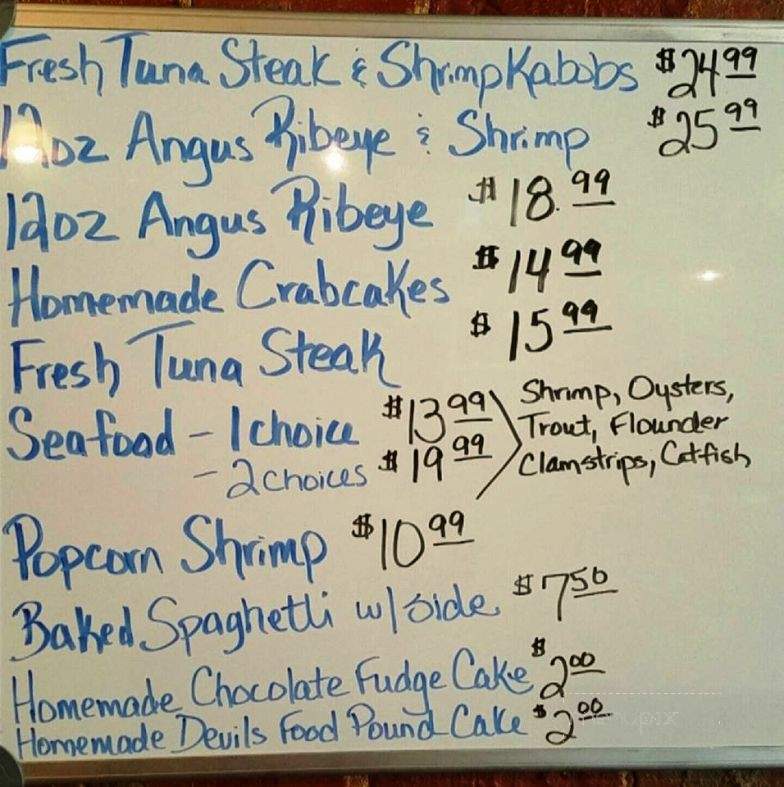 Fresh Tuna Steak & Shrimp Kabobs $24.99
12oz Angus Ribeye & Shrimp $25.99
12oz Angus Ribeye $18.99
Homemade Crabcakes $14.99
Fresh Tuna Steak $15.99
Seafood - 1 choice $13.99
- 2 choices $19.99
Shrimp, Oysters,
Trout, Flounder
Clamstrips, Catfish
Popcorn Shrimp $10.99
Baked Spaghetti w/side $7.50
Homemade Chocolate Fudge Cake $2.00
Homemade Devils Food Pound Cake $2.00
menupix